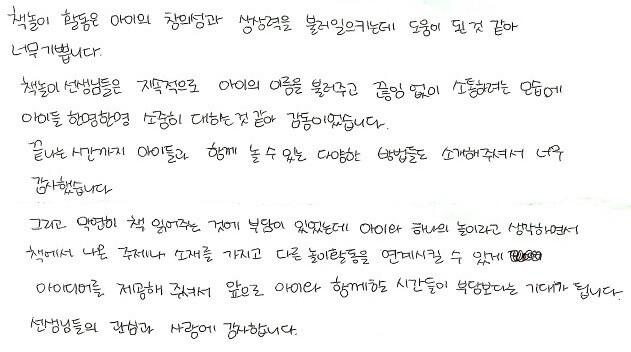 책놀이 활동은 아이의 창의성과 상상력을 불러일으키는데 도움이 된 것 같아
너무 기쁩니다.
책놀이 선생님들은 지속적으로 아이의 이름을 불러주고 끊임 없이 소통하려는 모습에
아이들 한명한명 소중히 대하는 것 같아 감동이었습니다.
끝나는 시간까지 아이들과 함께 놀 수 있는 다양한 방법들도 소개해주셔서 너무
감사했습니다
그리고 막연히 책 읽어주는 것에 부담이 있었는데 아이와 하나의 놀이라고 생각하면서
책에서 나온 주제나 소재를 가지고 다른 놀이활동을 연계시킬 수 있게
아이디어를 제공해 주셔서 앞으로 아이와 함께하는 시간들이 부담보다는 기대가 됩니다.
선생님들의 관심과 사랑에 감사합니다.